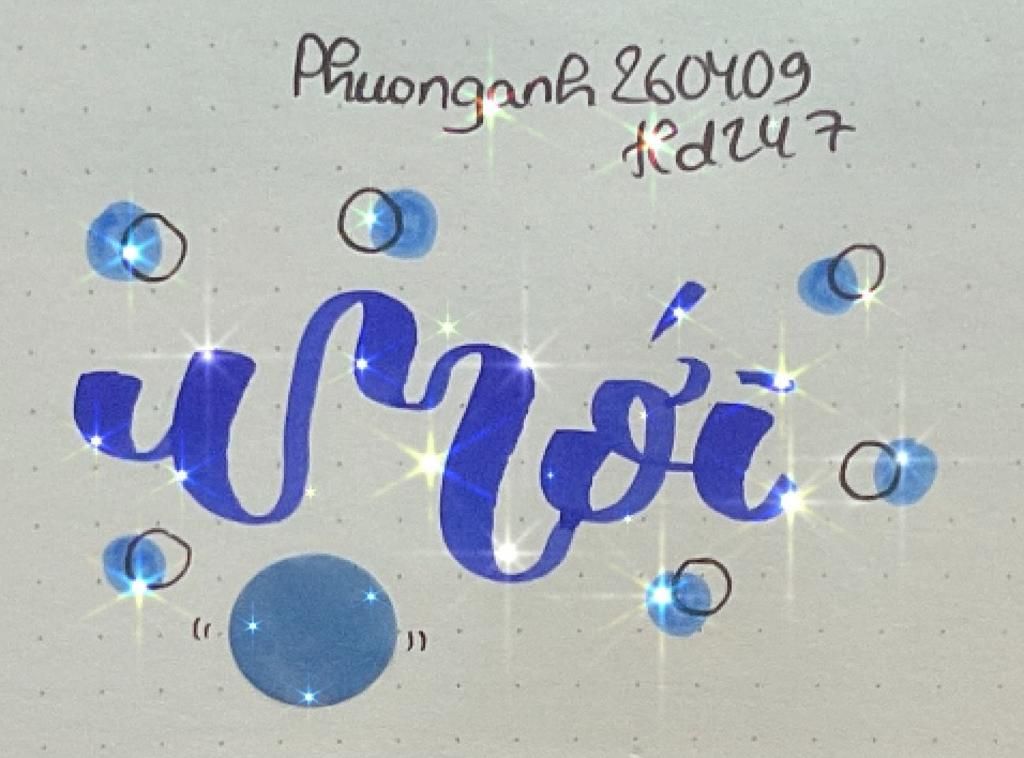 Phuonganh 260409
Hd247
Mới